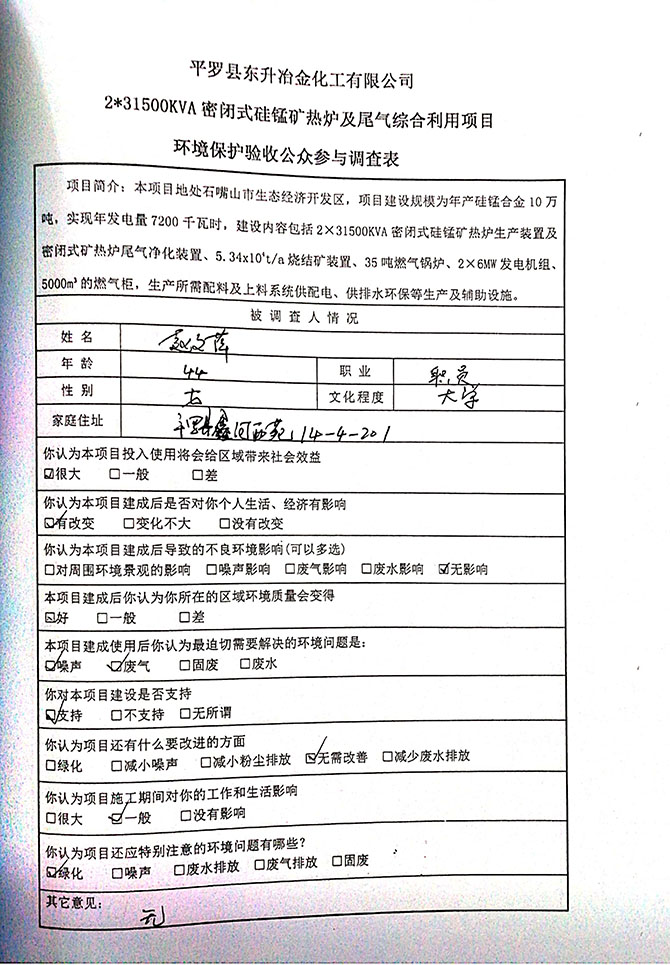 平罗县东升冶金化工有限公司
2*31500KVA 密闭式硅锰矿热炉及尾气综合利用项目
环境保护验收公众参与调查表
项目简介：本项目地处石嘴山市生态经济开发区，项目建设规模为年产硅锰合金 10 万
吨，实现年发电量 7200 千瓦时，建设内容包括 2×31500KVA 密闭式硅锰矿热炉生产装置及
密闭式矿热炉尾气净化装置、5.34x10⁴t/a 烧结矿装置、35 吨燃气锅炉、2×6MW 发电机组、
5000m³ 的燃气柜，生产所需配料及上料系统供配电、供排水环保等生产及辅助设施。
被 调 查 人 情 况
姓 名
年 龄 44 职 业 职员
性 别 女 文化程度 大学
家庭住址 14-4-201
你认为本项目投入使用将会给区域带来社会效益
☑很大 □一般 □差
你认为本项目建成后是否对你个人生活、经济有影响
☑有改变 □变化不大 □没有改变
你认为本项目建成后导致的不良环境影响(可以多选)
□对周围环境景观的影响 □噪声影响 □废气影响 □废水影响 ☑无影响
本项目建成后你认为你所在的区域环境质量会变得
☑好 □一般 □差
本项目建成使用后你认为最迫切需要解决的环境问题是：
☑噪声 ☑废气 □固废 □废水
你对本项目建设是否支持
☑支持 □不支持 □无所谓
你认为项目还有什么要改进的方面
□绿化 □减小噪声 □减小粉尘排放 ☑无需改善 □减少废水排放
你认为项目施工期间对你的工作和生活影响
□很大 ☑一般 □没有影响
你认为项目还应特别注意的环境问题有哪些？
☑绿化 □噪声 □废水排放 □废气排放 □固废
其它意见：
无